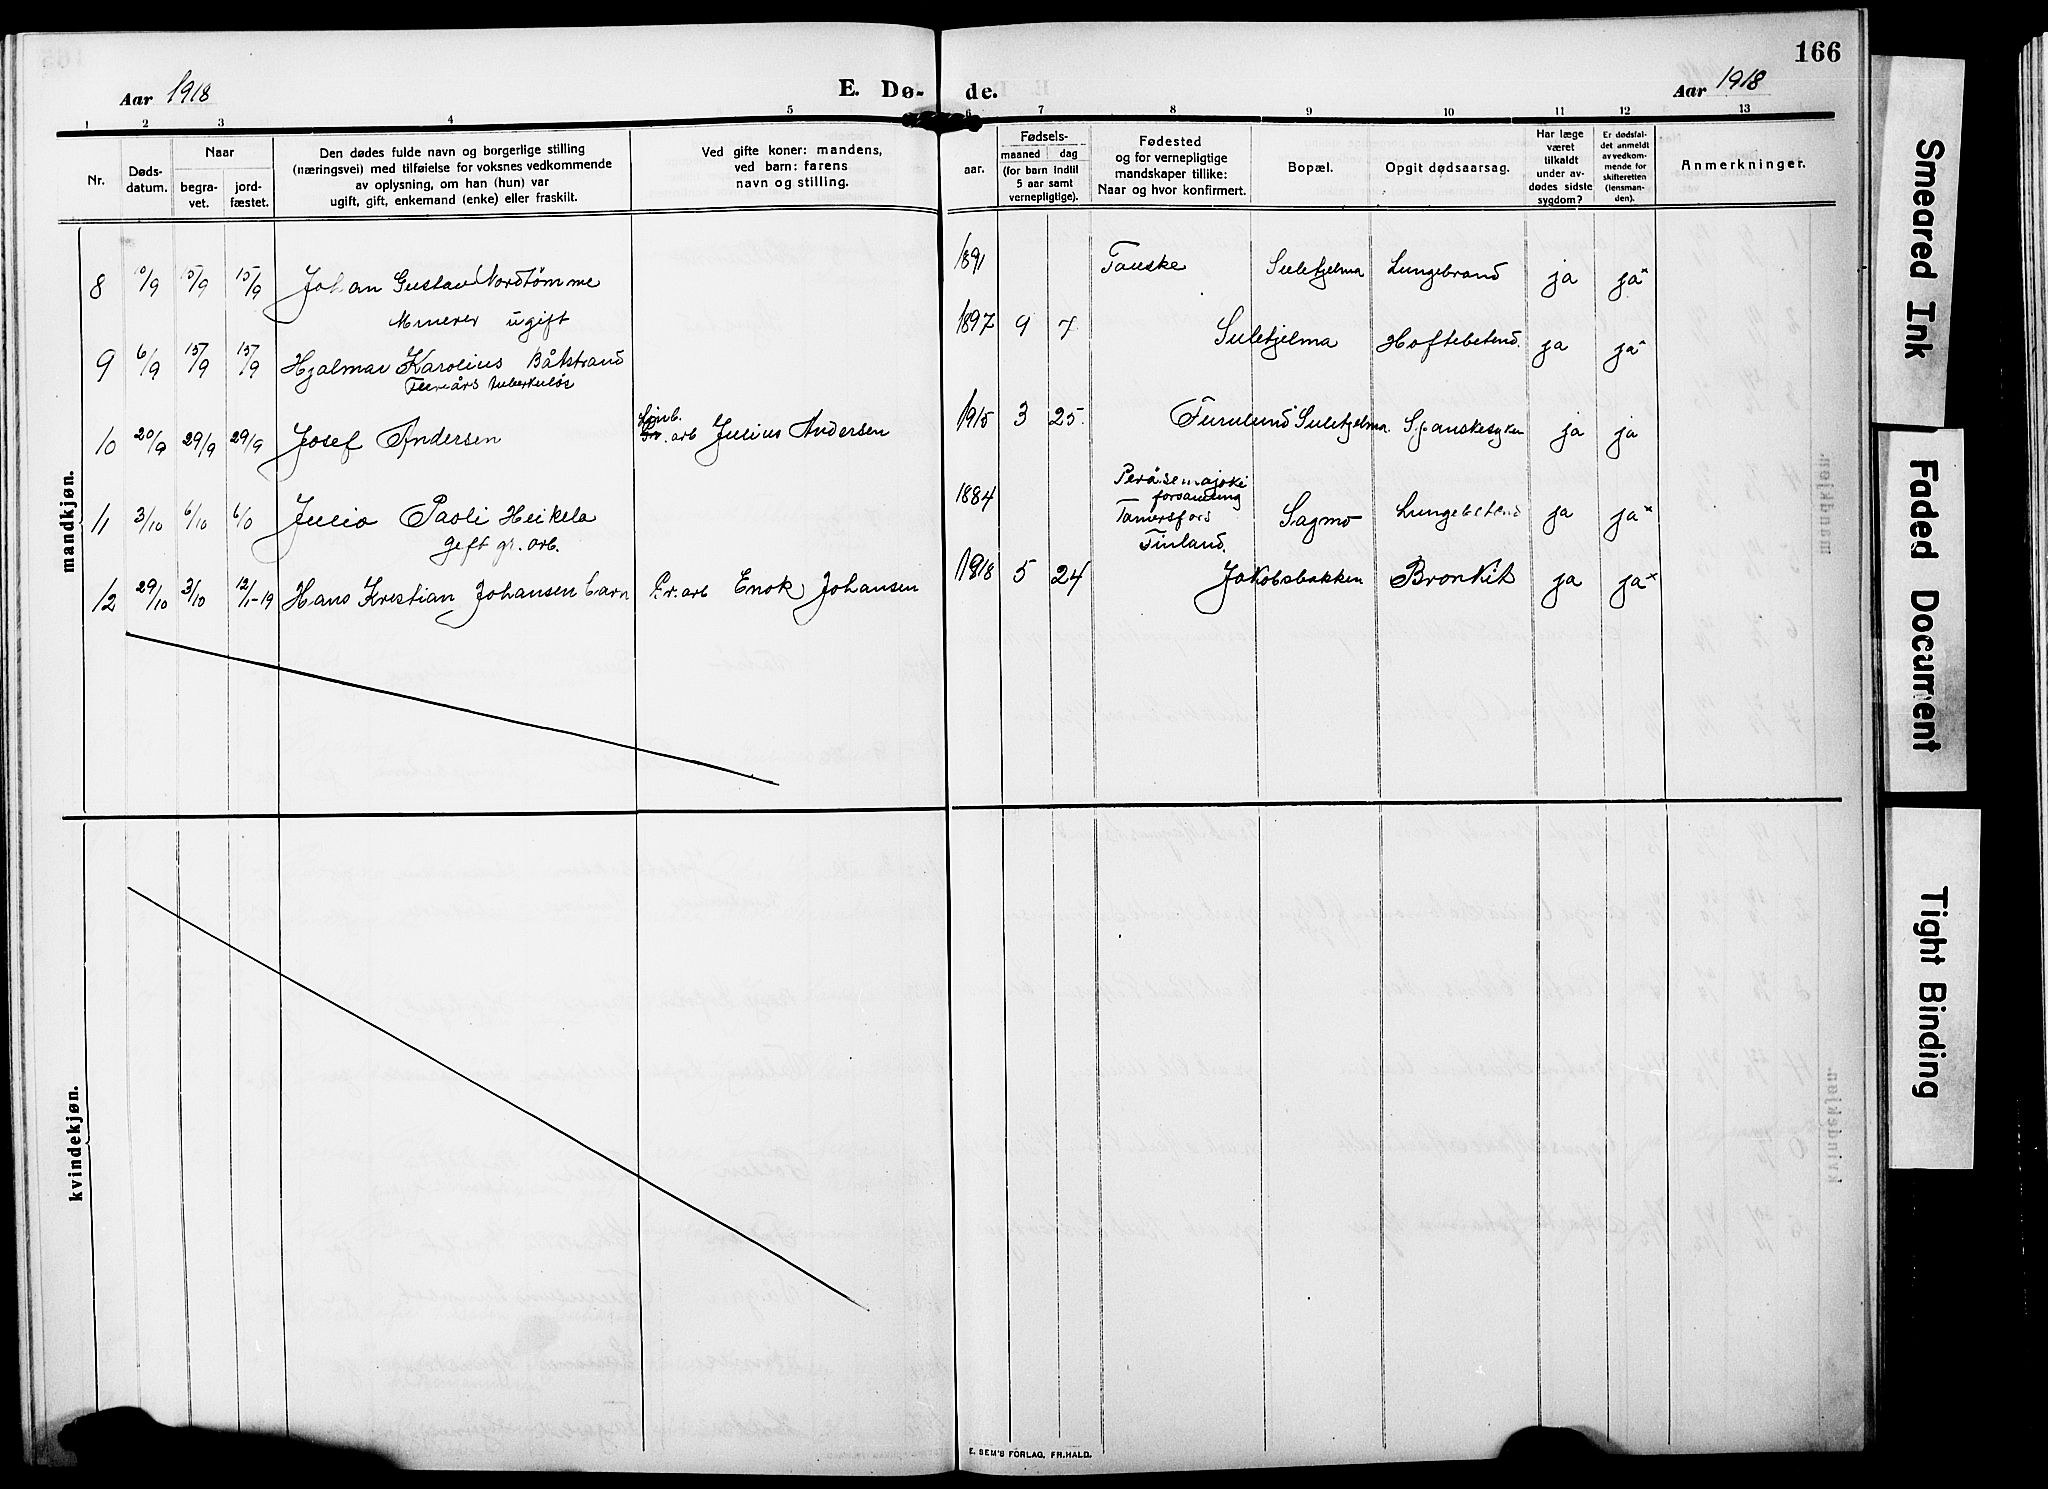 166
Aar 1918
E. Dø-
de.
Aar 1918
1 2 3 4 5 6 7 8 9 10 11 12 13
Nr.
Døds-
datum.
Naar
begra-
vet.
jord-
fæstet.
Den dødes fulde navn og borgerlige stilling
(næringsvei) med tilføielse for voksnes vedkommende
av oplysning, om han (hun) var
ugift, gift, enkemand (enke) eller fraskilt.
Ved gifte koner: mandens,
ved barn: farens
navn og stilling.
aar.
Fødsels-
maaned dag
(for barn indtil
5 aar samt
vernepligtige).
Fødested
og for vernepligtige
mandskaper tillike:
Naar og hvor konfirmert.
Bopæl.
Opgit dødsaarsag.
Har læge
været
tilkaldt
under av-
dødes sidste
sygdom?
Er dødsfal-
det anmeldt
av vedkom-
mende for
skifteretten
(lensman-
den).
Anmerkninger.
mandkjøn.
8 10/9 15/9 15/9 Johan Gustav Nordtømme 1891 Fauske Sulitjelma Lungebrand ja ja x
Minerer ugift
9 6/9 15/9 15/9 Hjalmar Karolius Båtstrand 1897 9 7 Sulitjelma Hoftebetend. ja ja x
Fleråårs tuberkuløs
10 20/9 29/9 29/9 Josef Andersen Jernb. arb Julius Andersen 1915 3 25. Furulund Sulitjelma. Spanskesyken ja ja
11 3/10 6/10 6/10 Julio Paoli Heikela 1884 Peräsemajoki
forsamling
Tamersfors
Finland. Sagmo Lungebetend ja ja x
Gift gr. arb.
12 29/10 3/10 12/1-19 Hans Kristian Johansen barn Gr. arb Enok Johansen 1918 5 24 Jakobsbakken Bronkit ja ja x
kvindekjøn.
E. SEM'S FORLAG, FR.HALD.
Smeared Ink
Faded Document
Tight Binding